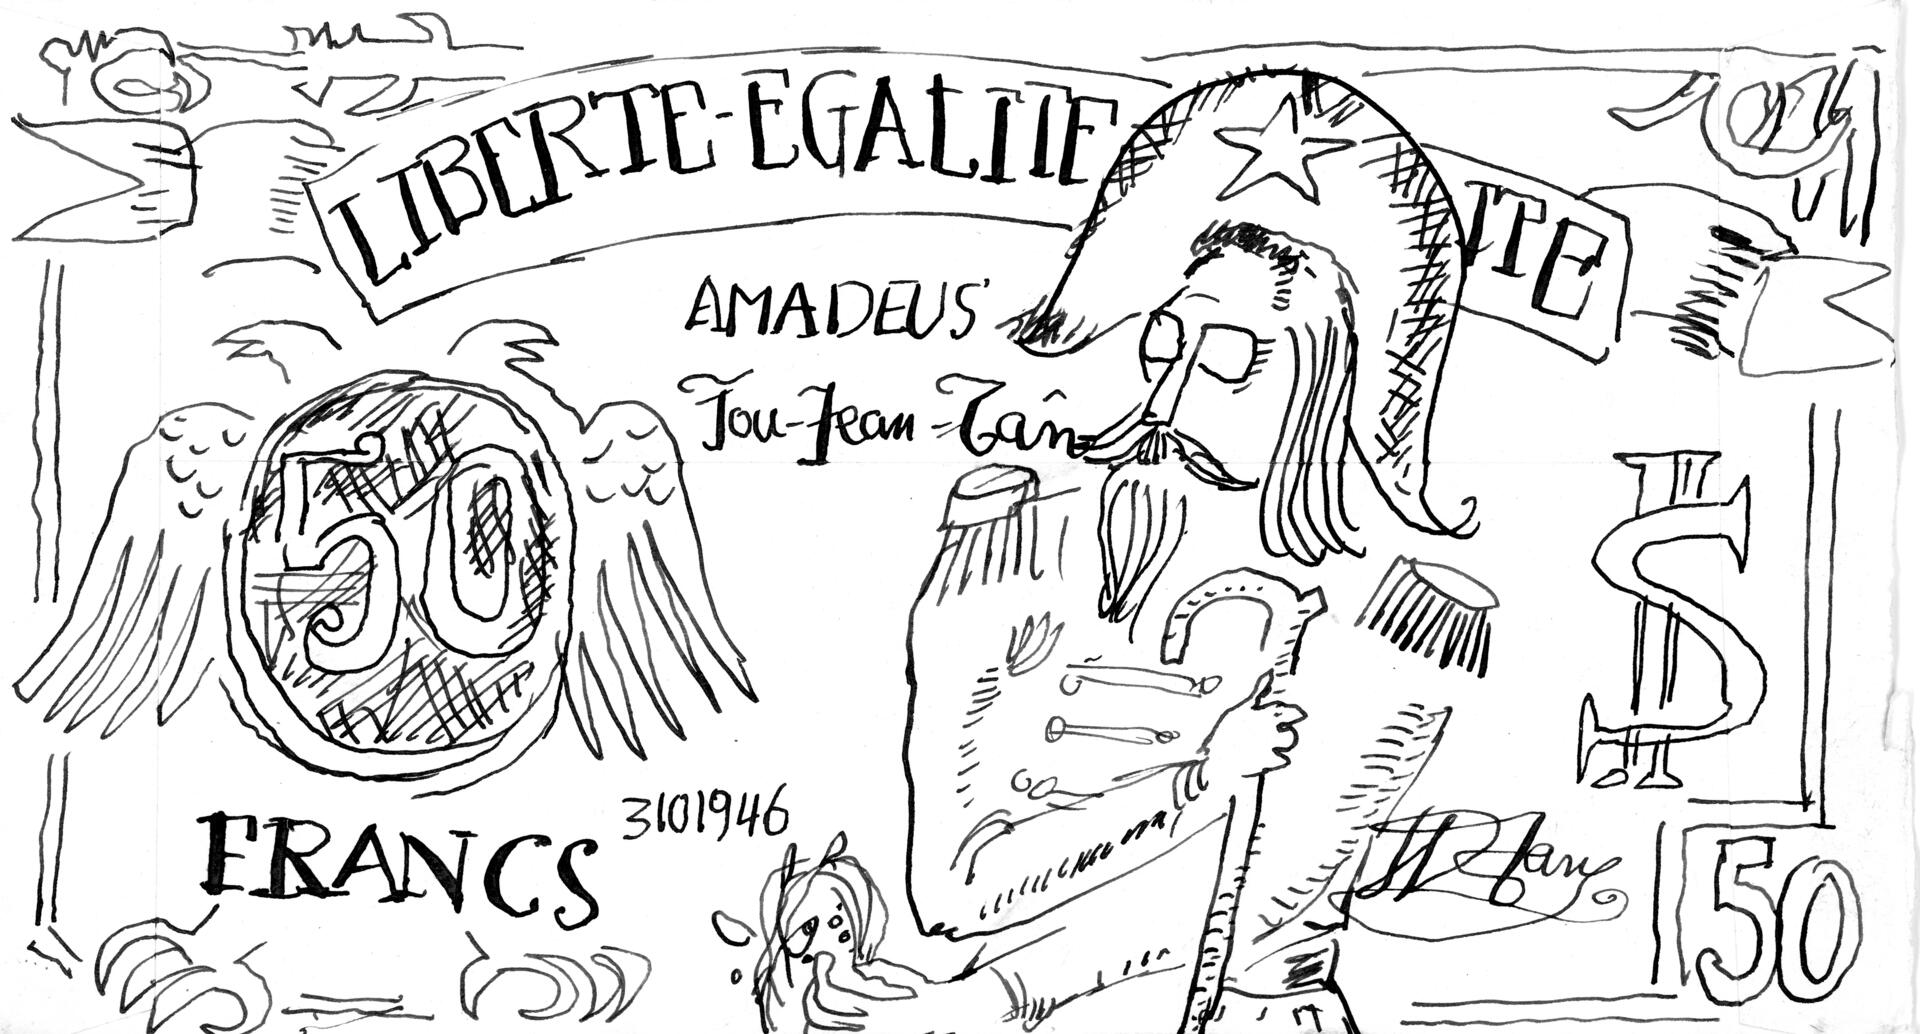 LIBERTE-EGALITE ITE
AMADEUS'
Tou-Jean-Taîn
50
$
FRANCS
3101946
50